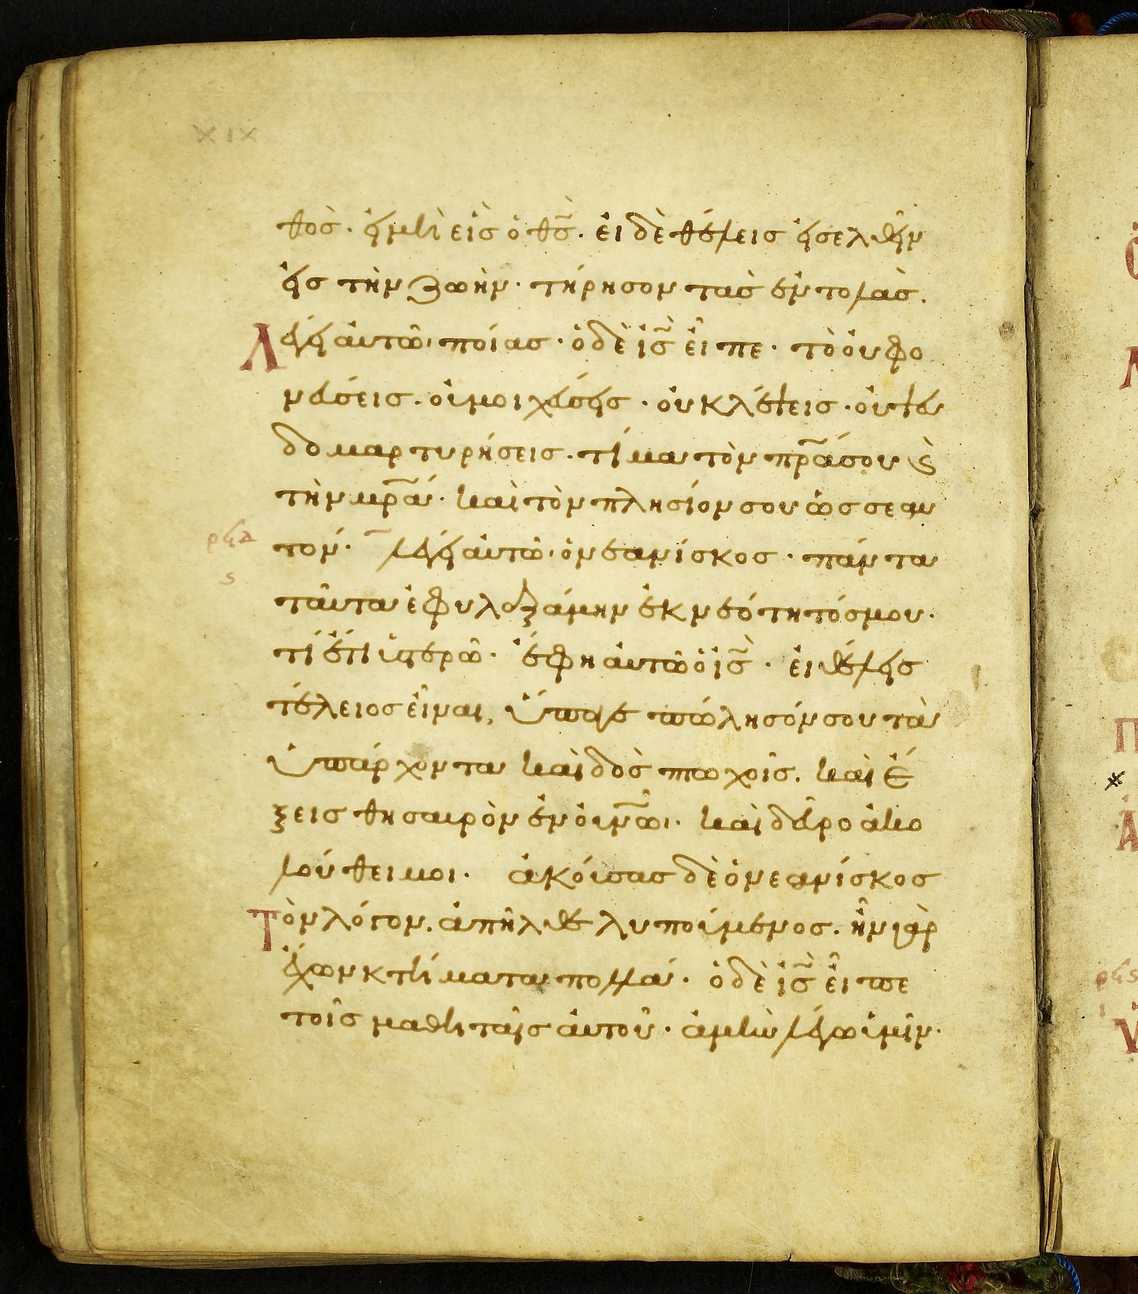 XIX
θὸς· εἰ μὴ εἷς ὁ θς̅· εἰ δὲ θέλεις εἰσελθεῖν
εἰς τὴν ζωὴν· τήρησον τὰς ἐντολάς.
Λέγει αὐτῶ· ποίας· ὁ δὲ ις̅ εἶπε· τὸ οὐ φο
νεύσεις. οὐ μοιχεύσεις· οὐ κλέψεις· οὐ ψευ
δομαρτυρήσεις. τίμα τὸν πρ̅α σου ϗ
τὴν μρ̅α· καὶ τὸν πλησίον σου ὡς σεαυ
τόν· λέγει αὐτῶ· ὁ νεανίσκος· πάντα
ταῦτα ἐφυλαξάμην ἐκ νεότητός μου·
τί ἔτι ὑστερῶ· ἔφη αὐτῶ ὁ ις̅· εἰ θέλεις
τέλειος εἶναι, ὕπαγε πώλησόν σου τὰ
ὑπάρχοντα καὶ δὸς πτωχοῖς. καὶ ἕ
ξεις θησαυρὸν ἐν οὐν̅ω· καὶ δεῦρο ἀκο
λούθει μοι· ἀκούσας δὲ ὁ νεανίσκος
Τὸν λόγον. ἀπῆλθε λυπούμενος. ἦν γὰρ
ἔχων κτήματα πολλά· ὁ δὲ ις̅ εἶπε
τοῖς μαθηταῖς αὐτοῦ· ἀμὴν λέγω ὑμῖν·